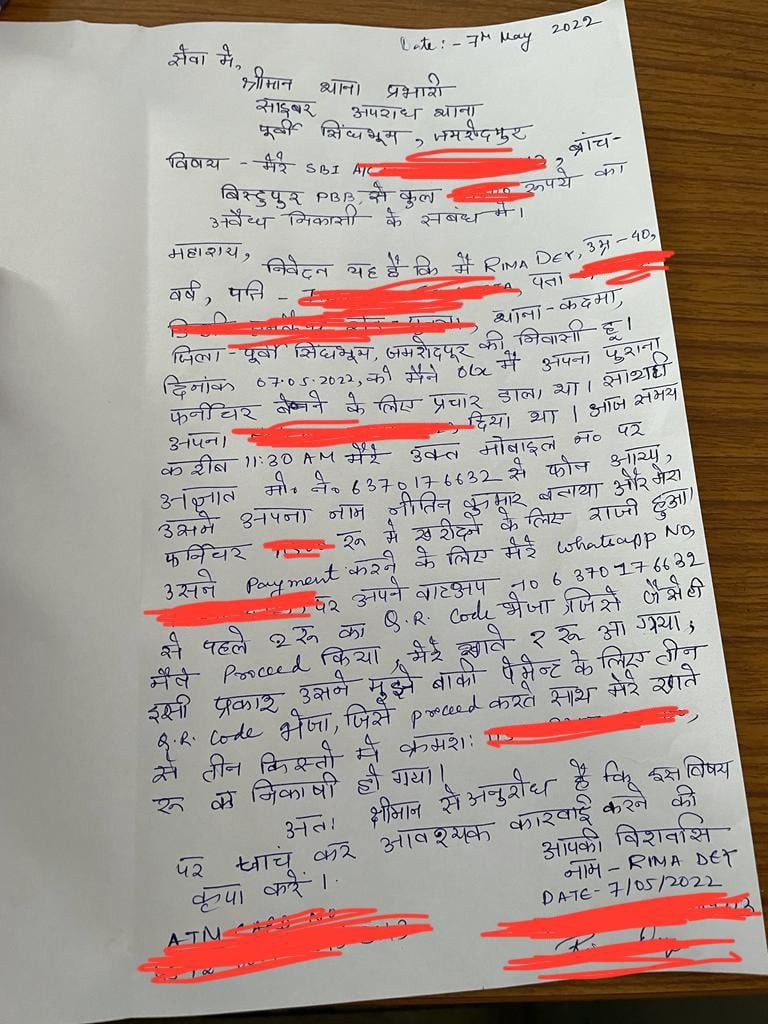 Date:- 7th May 2022
सेवा में,
श्रीमान थाना प्रभारी
साइबर अपराध थाना
पूर्वी सिंघभूम, जमशेदपुर
विषय - मेरे SBI A/C , ब्रांच-
बिस्टुपुर PBB, से कुल रूपये का
अवैध्य निकासी के संबंध में।
महाशय,
निवेदन यह है कि मैं RIMA DEY, उम्र-40,
वर्ष, पति - , पता
, थाना-कदमा,
जिला-पूर्वी सिंघभूम, जमशेदपुर की निवासी हूं।
दिनांक 07.05.2022, को मैंने Olx में अपना पुराना
फर्नीचर बेचने के लिए प्रचार डाला था। साथही
अपना दिया था। आज समय
करीब 11:30 AM मेरे उक्त मोबाइल नं० पर
अज्ञात मो० नं० 6370176632 से फोन आया,
उसने अपना नाम नीतिन कुमार बताया और मेरा
फर्निचर रू में खरीदने के लिए राजी हुआ।
उसने Payment करने के लिए मेरे Whatsapp NO,
पर अपने वाटअप no 6370176632
से पहले 2 रू का Q.R. Code भेजा जिसे जैसेही
मैंने Proceed किया, मेरे खाते 2 रू आ गया;
इसी प्रकार उसने मुझे बाकी पेमेन्ट के लिए तीन
Q.R. Code भेजा, जिसे proceed करते साथ मेरे खाते
से तीन किस्तो में क्रमश: ,
रू का निकाषी हो गया।
अत: श्रीमान से अनुरोध है कि इस विषय
पर जांच कर आवश्यक कारवाई करने की
कृपा करें।
आपकी विश्वासि
नाम - RIMA DEY
DATE- 7/05/2022
ATM